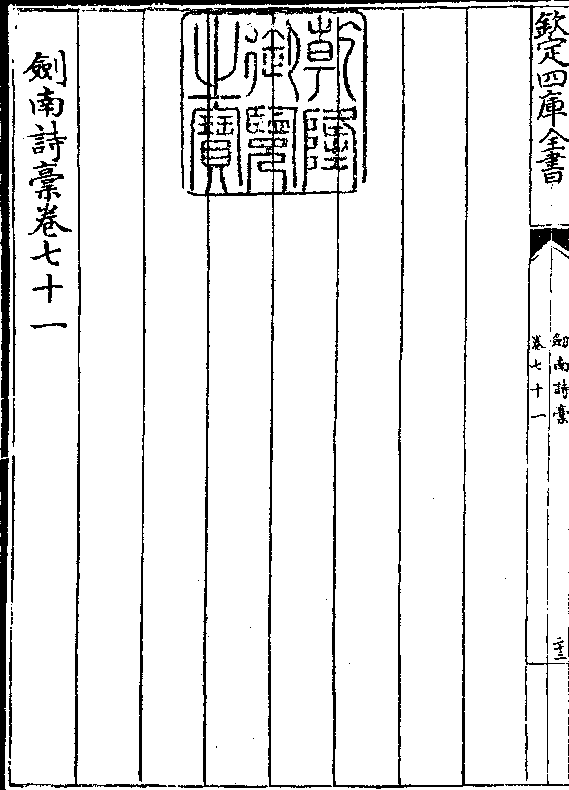 欽定四庫全書
劍南詩稾
卷七十一
二十三
乾隆
御覽
之寶
劍南詩稾卷七十一